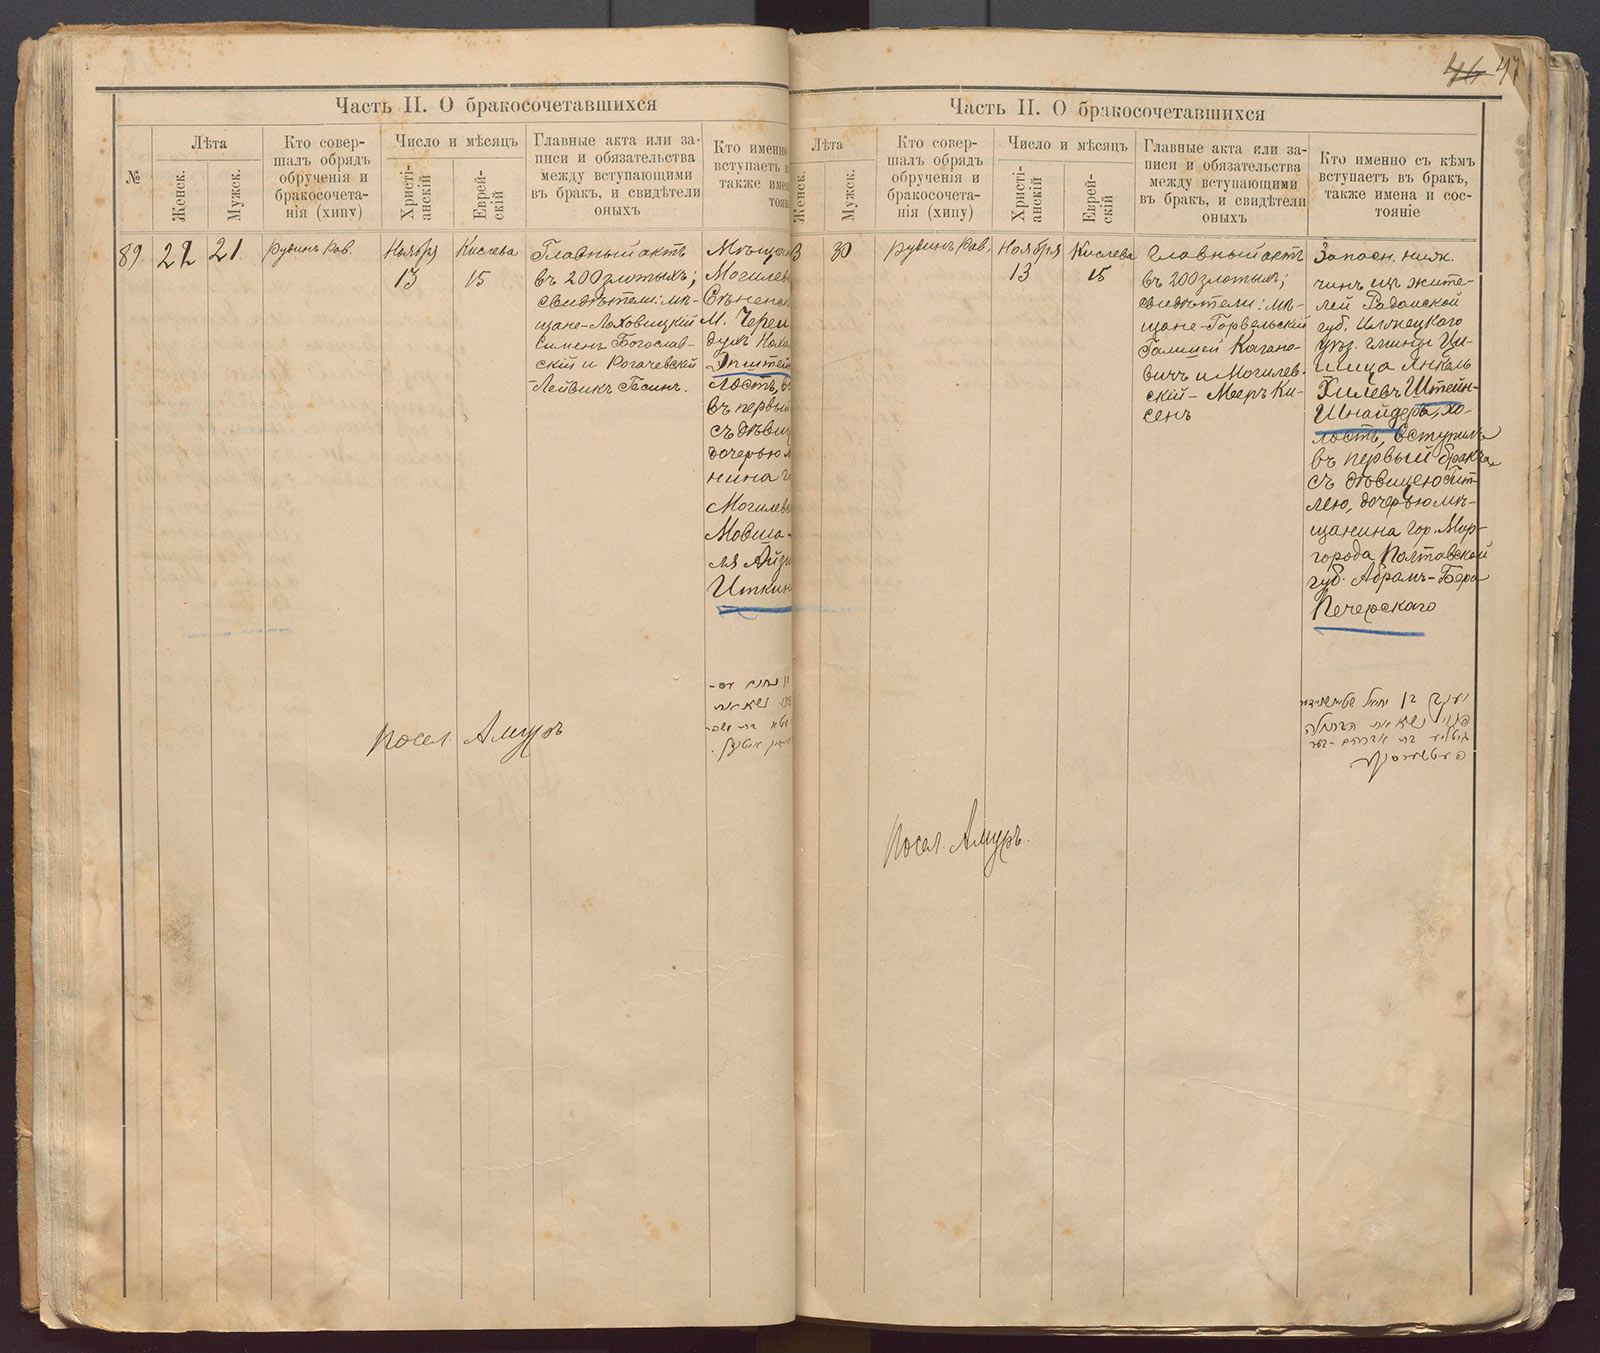 46 47
Часть II. О бракосочетавшихся
№
Лѣта
Женск.
Мужск.
Кто совер-
шалъ обрядъ
обрученія и
бракосочета-
нія (хипу)
Число и мѣсяцъ
Христі-
анскій
Еврей-
скій
Главные акта или за-
писи и обязательства
между вступающими
въ бракъ, и свидѣтели
оныхъ
Кто именно
вступаетъ
также имен
стоян
89
22
21
Рубинъ Рав.
Ноября
13
Кислева
15
Главный актъ
въ 200 злотыхъ;
свидѣтели: мѣ-
щане - Ляховицкій
Сименъ Богослав-
скій и Рогачевскій
Лейвикъ Гесинъ.
Мѣща
Могилев
Сѣненск
м. Череи
Эпштей
лостъ,
въ первый
съ дѣвиц
дочерью м
нина г
Могилев
Мовша-
Иткин
посел. Амуръ
Часть II. О бракосочетавшихся
Лѣта
Женск.
Мужск.
Кто совер-
шалъ обрядъ
обрученія и
бракосочета-
нія (хипу)
Число и мѣсяцъ
Христі-
анскій
Еврей-
скій
Главные акта или за-
писи и обязательства
между вступающими
въ бракъ, и свидѣтели
оныхъ
Кто именно съ кѣмъ
вступаетъ въ бракъ,
также имена и сос-
тояніе
3
30
Рубинъ Рав.
Ноября
13
Кислева
15
Главный актъ
въ 200 злотыхъ;
свидѣтели: мѣ-
щане - Горвельскій
Кагано-
вичъ и Могилев-
скій - Мееръ Ки-
сенъ
Запасн. нижн.
чинъ изъ жите-
лей Радомской
губ. Илжецкаго
уѣз. гмины Ци-
Янкель
Хилевъ Штейн-
Шнайдеръ, хо-
лостъ, вступилъ
въ первый бракъ
съ дѣвицею Гит-
лею, дочерью мѣ-
щанина гор. Мир-
города Полтавской
губ. Абрамъ-Бера
Печерскаго
יעקב בן יחיאל שטיינשניידער
פנוי נשא את הבתולה
גיטליע בת אברהם-בער
פעטשערסקי
посел. Амуръ.